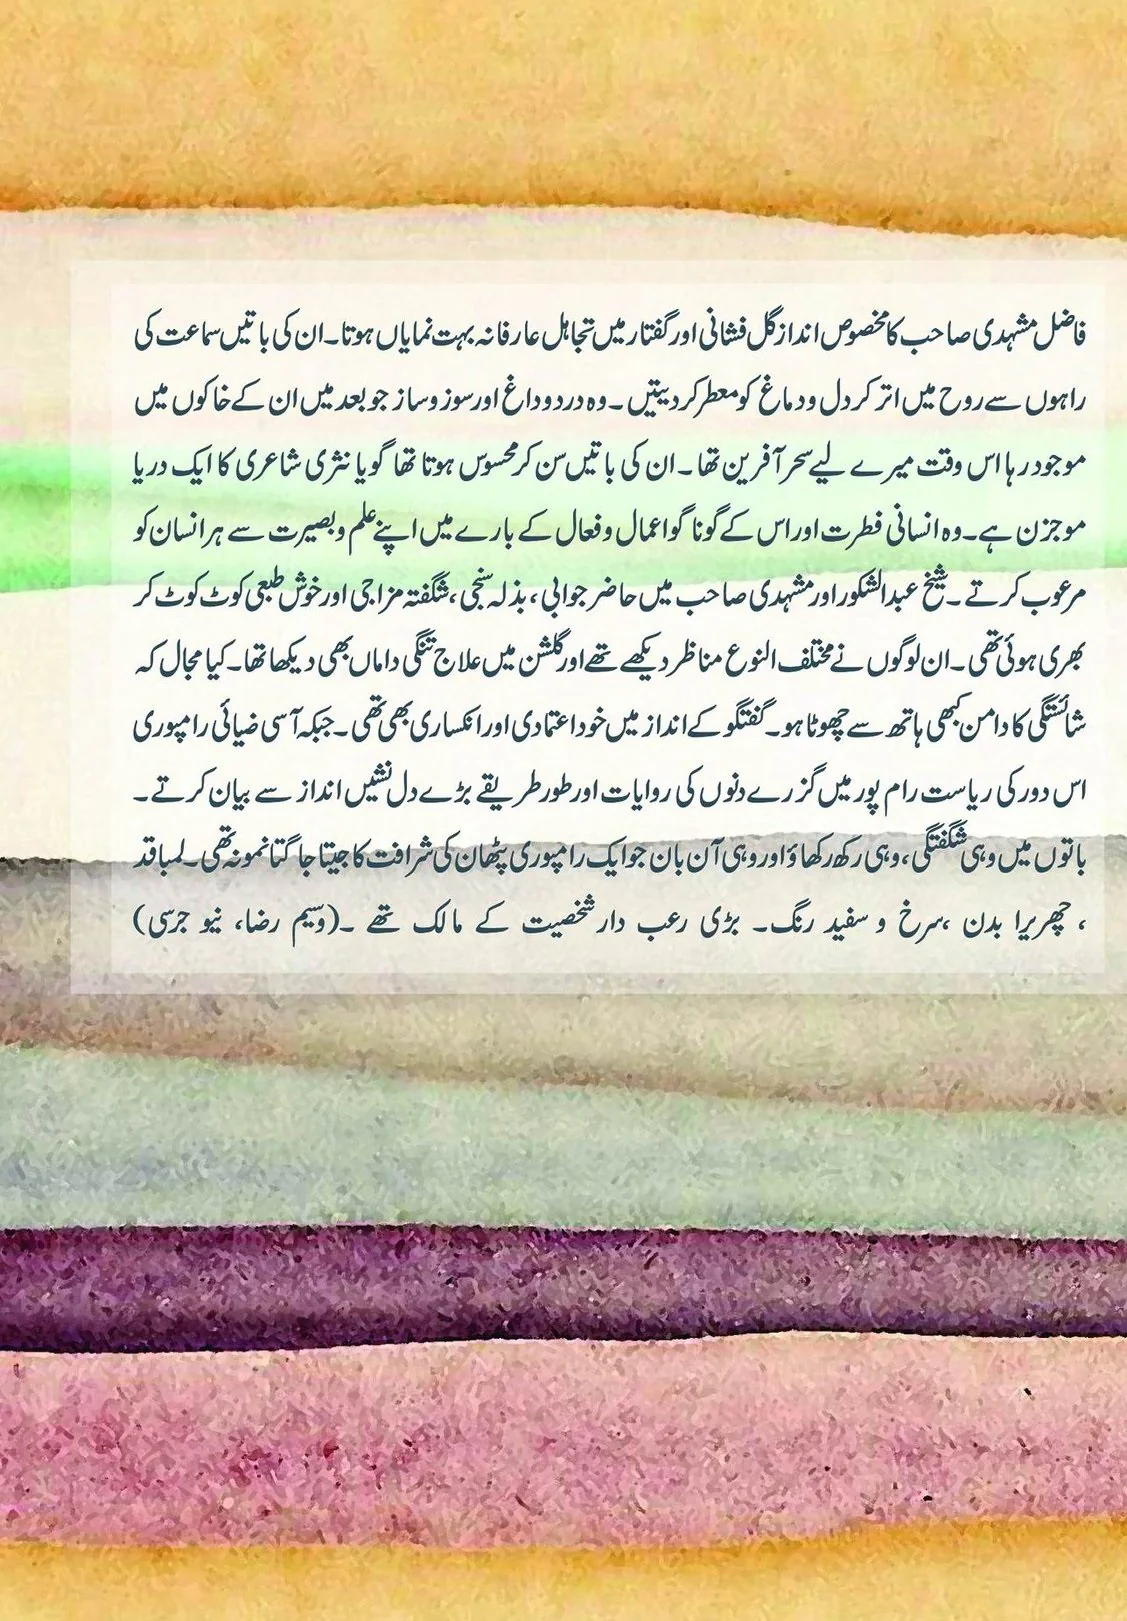 فاضل مشہدی صاحب کا مخصوص انداز گل فشانی اور گفتار میں تجاہل عارفانہ بہت نمایاں ہوتا۔ ان کی باتیں سماعت کی
راہوں سے روح میں اتر کر دل و دماغ کو معطر کر دیتیں ۔ وہ درد و داغ اور سوز و ساز جو بعد میں ان کے خاکوں میں
موجود رہا اس وقت میرے لیے سحر آفرین تھا ۔ ان کی باتیں سن کر محسوس ہوتا تھا گویا نثری شاعری کا ایک دریا
موجزن ہے۔ وہ انسانی فطرت اور اس کے گونا گو اعمال و فعال کے بارے میں اپنے علم و بصیرت سے ہر انسان کو
مرعوب کرتے ۔ شیخ عبدالشکور اور مشہدی صاحب میں حاضر جوابی ، بذلہ سنجی ، شگفتہ مزاجی اور خوش طبعی کوٹ کوٹ کر
بھری ہوئی تھی ۔ ان لوگوں نے مختلف النوع مناظر دیکھے تھے اور گلشن میں علاج تنگی داماں بھی دیکھا تھا۔ کیا مجال کہ
شائستگی کا دامن کبھی ہاتھ سے چھوٹا ہو۔ گفتگو کے انداز میں خود اعتمادی اور انکساری بھی تھی ۔ جبکہ آسی ضیائی رامپوری
اس دور کی ریاست رام پور میں گزرے دنوں کی روایات اور طور طریقے بڑے دل نشیں انداز سے بیان کرتے ۔
باتوں میں وہی شگفتگی ، وہی رکھ رکھاؤ اور وہی آن بان جو ایک رامپوری پٹھان کی شرافت کا جیتا جاگتا نمونہ تھی۔ لمبا قد
، چھریرا بدن ،سرخ و سفید رنگ۔ بڑی رعب دار شخصیت کے مالک تھے ۔(وسیم رضا، نیو جرسی)